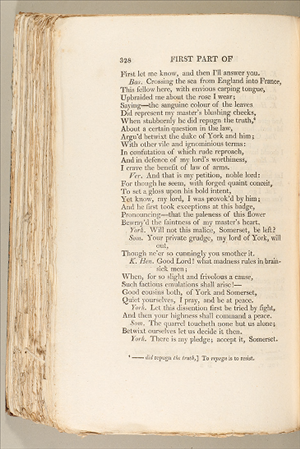 328 FIRST PART OF
First let me know, and then I'll answer you.
Bas. Crossing the sea from England into France,
This fellow here, with envious carping tongue,
Upbraided me about the rose I wear;
Saying—the sanguine colour of the leaves
Did represent my master's blushing cheeks,
When stubbornly he did repugn the truth,⁴
About a certain question in the law,
Argu'd betwixt the duke of York and him;
With other vile and ignominious terms:
In confutation of which rude reproach,
And in defence of my lord's worthiness,
I crave the benefit of law of arms.
Ver. And that is my petition, noble lord:
For though he seem, with forged quaint conceit,
To set a gloss upon his bold intent,
Yet know, my lord, I was provok'd by him;
And he first took exceptions at this badge,
Pronouncing—that the paleness of this flower
Bewray'd the faintness of my master's heart.
York. Will not this malice, Somerset, be left?
Som. Your private grudge, my lord of York, will
out,
Though ne'er so cunningly you smother it.
K. Hen. Good Lord! what madness rules in brain-
sick men;
When, for so slight and frivolous a cause,
Such factious emulations shall arise!—
Good cousins both, of York and Somerset,
Quiet yourselves, I pray, and be at peace.
York. Let this dissention first be tried by fight,
And then your highness shall command a peace.
Som. The quarrel toucheth none but us alone;
Betwixt ourselves let us decide it then.
York. There is my pledge; accept it, Somerset.
⁴ —— did repugn the truth,] To repugn is to resist.